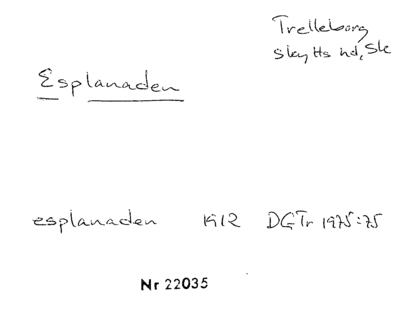 Trelleborg
Skytts hd, Sk
Esplanaden
esplanaden 1912 DGTr 1975:75
Nr 22035